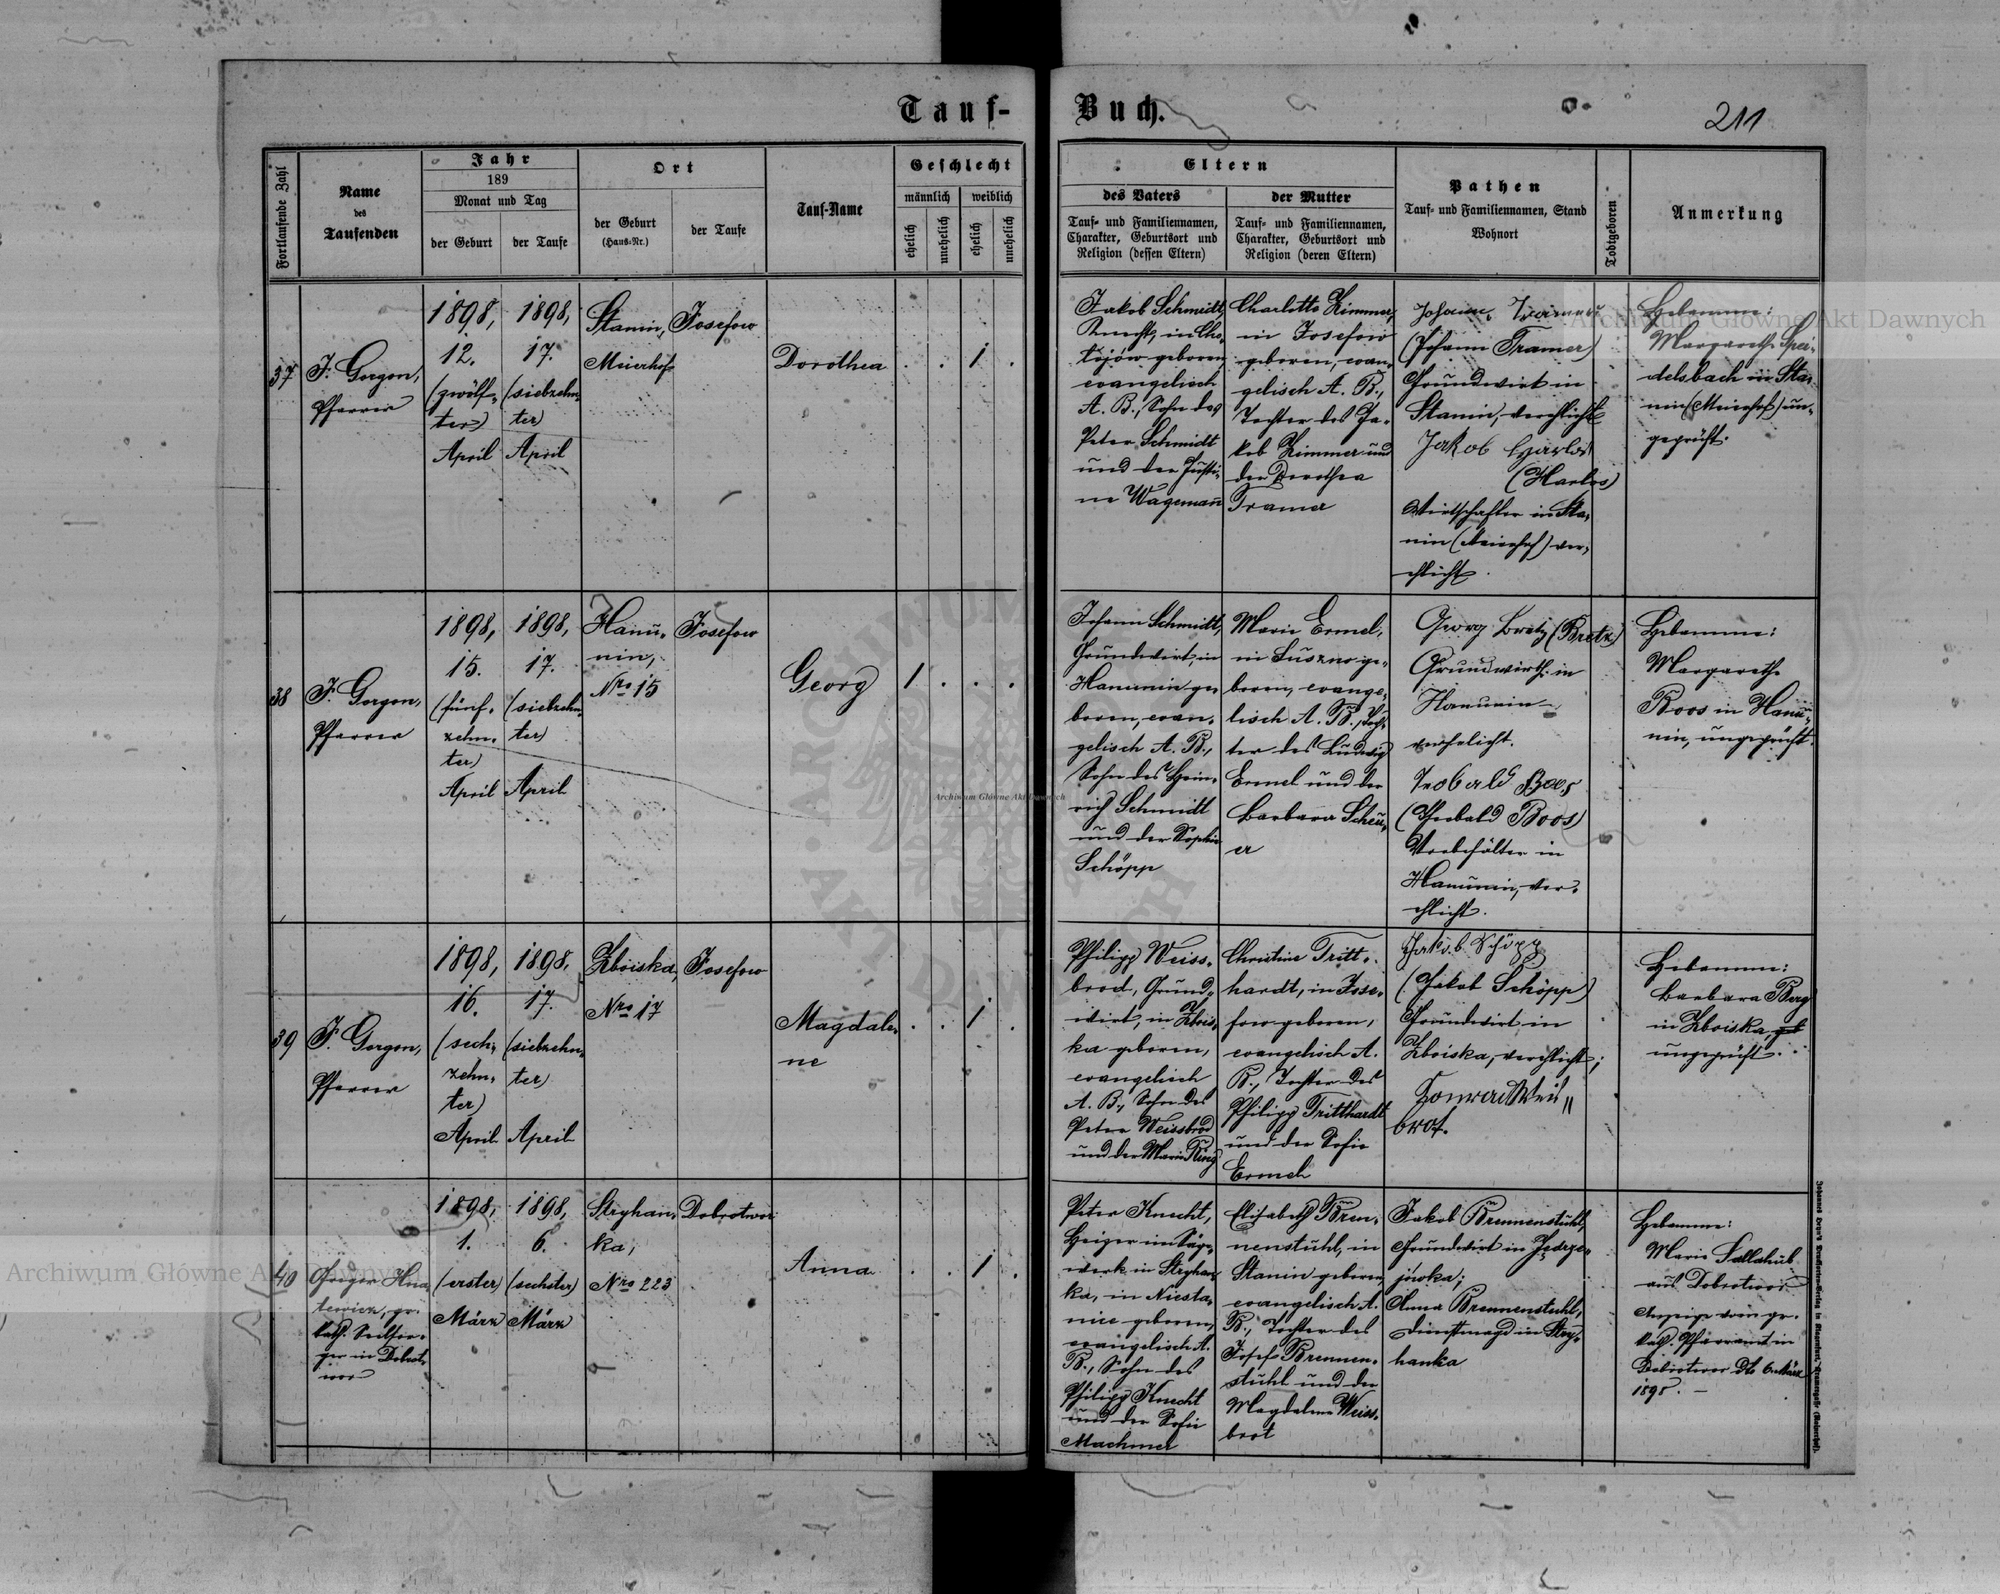 Tauf-
Buch.
211
Fortlaufende Zahl
Name
des
Taufenden
Jahr
189
Monat und Tag
der Geburt
der Taufe
Ort
der Geburt
(Haus-Nr.)
der Taufe
Tauf-Name
Geschlecht
männlich
weiblich
ehelich
unehelich
ehelich
unehelich
Eltern
des Vaters
Tauf- und Familiennamen,
Charakter, Geburtsort und
Religion (dessen Eltern)
der Mutter
Tauf- und Familiennamen,
Charakter, Geburtsort und
Religion (deren Eltern)
Pathen
Tauf- und Familiennamen, Stand
Wohnort
Todtgeboren
Anmerkung
37
F. Gorgon,
Pfarrer
1898,
12.
(zwölf-
ter)
April
1898,
17.
(siebzehn-
ter)
April
Stanin,
Meierhof
Josefow
Dorothea
1
Jakob Schmidt,
Knecht, in Cho-
lojów geboren,
evangelisch
A. B., Sohn des
Peter Schmidt
und der Justi-
ne Wagemann
Charlotte Zimmer,
in Josefow
geboren, evan-
gelisch A. B.,
Tochter des Ja-
kob Zimmer und
der Dorothea
Tramer
Johann
(Johann Tramer)
Grundwirt in
Stanin, verehlicht
Jakob Harlos
(Harlos)
Wirtschafter in Sta-
nin (Meierhof) ver-
ehlicht.
Hebamme:
Margarethe Spei-
delsbach in Sta-
nin (Meierhof) un-
geprüft.
38
F. Gorgon,
Pfarrer
1898,
15.
(fünf-
zehn-
ter)
April
1898,
17.
(siebzehn-
ter)
April
Hanu-
nin,
Nro 15
Josefow
Georg
1
Johann Schmidt,
Grundwirt, in
Hanunin ge-
boren, evan-
gelisch A. B.,
Sohn des Hein-
rich Schmidt
und der Sophie
Schöpp
Marie Ermel,
in ge-
boren, evange-
lisch A. B., Toch-
ter des Ludwig
Ermel und der
Barbara Scheu-
er
Georg Bretz (Bretz)
Grundwirth in
Hanunin
verehelicht.
Teobald Boos
(Theobald Boos)
Vorbehälter in
Hanunin, ver-
ehlicht.
Hebamme:
Margarethe
Boos in Hanu-
nin, ungeprüft.
39
F. Gorgon,
Pfarrer
1898,
16.
(sech-
zehn-
ter)
April
1898,
17.
(siebzehn-
ter)
April
Zboiska,
Nro 17
Josefow
Magdale-
ne
1
Philipp Weiss-
brod, Grund-
wirt, in Zbois-
ka geboren,
evangelisch
A. B., Sohn des
Peter Weissbrod
und der Marie Ring
Christine Tritt-
hardt, in Jose-
fow geboren,
evangelisch A.
B., Tochter des
Philipp Tritthardt
und der Sofie
Ermel
Jakob Schöpp
(Jakob Schöpp)
Grundwirt in
Zboiska, verehlicht;
Konrad Weis"
brot.
Hebamme:
Barbara Berg
in Zboiska,
ungeprüft.
40
Gregor Hna-
tewicz, gr.
kath. Seelsor-
ger in Dobrot-
wor
1898,
1.
(erster)
März
1898,
6.
(sechster)
März
Stryhan-
ka,
Nro 223
Dobrotwor
Anna
1
Peter Knecht,
Heizer im Säge-
werk in Stryhan-
ka, in Niesta-
nice geboren,
evangelisch A.
B., Sohn des
Philipp Knecht
und der Sofie
Machmer
Elisabeth Bren-
nenstuhl, in
Stanin geboren,
evangelisch A.
B., Tochter des
Josef Brennen-
stuhl und der
Magdalena Weiss-
brot
Jakob Brennenstuhl,
Grundwirt in Jedrze-
jowka;
Anna Brennenstuhl,
Dienstmagd in Stry-
hanka
Hebamme:
Marie
aus Dobrotwor
Anzeige vom gr.
kath. Pfarramt in
Dobrotwor dto 6. März
1898.
Archiwum Główne Akt Dawnych
Archiwum Główne Akt Dawnych
Archiwum Główne Akt Dawnych